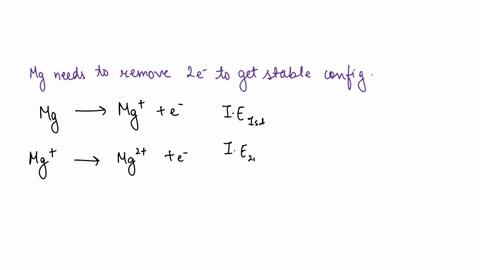 Mg needs to remove 2e⁻ to get stable config.
Mg ⟶ Mg⁺ + e⁻ I.E Ist
Mg⁺ ⟶ Mg²⁺ + e⁻ I.E 2